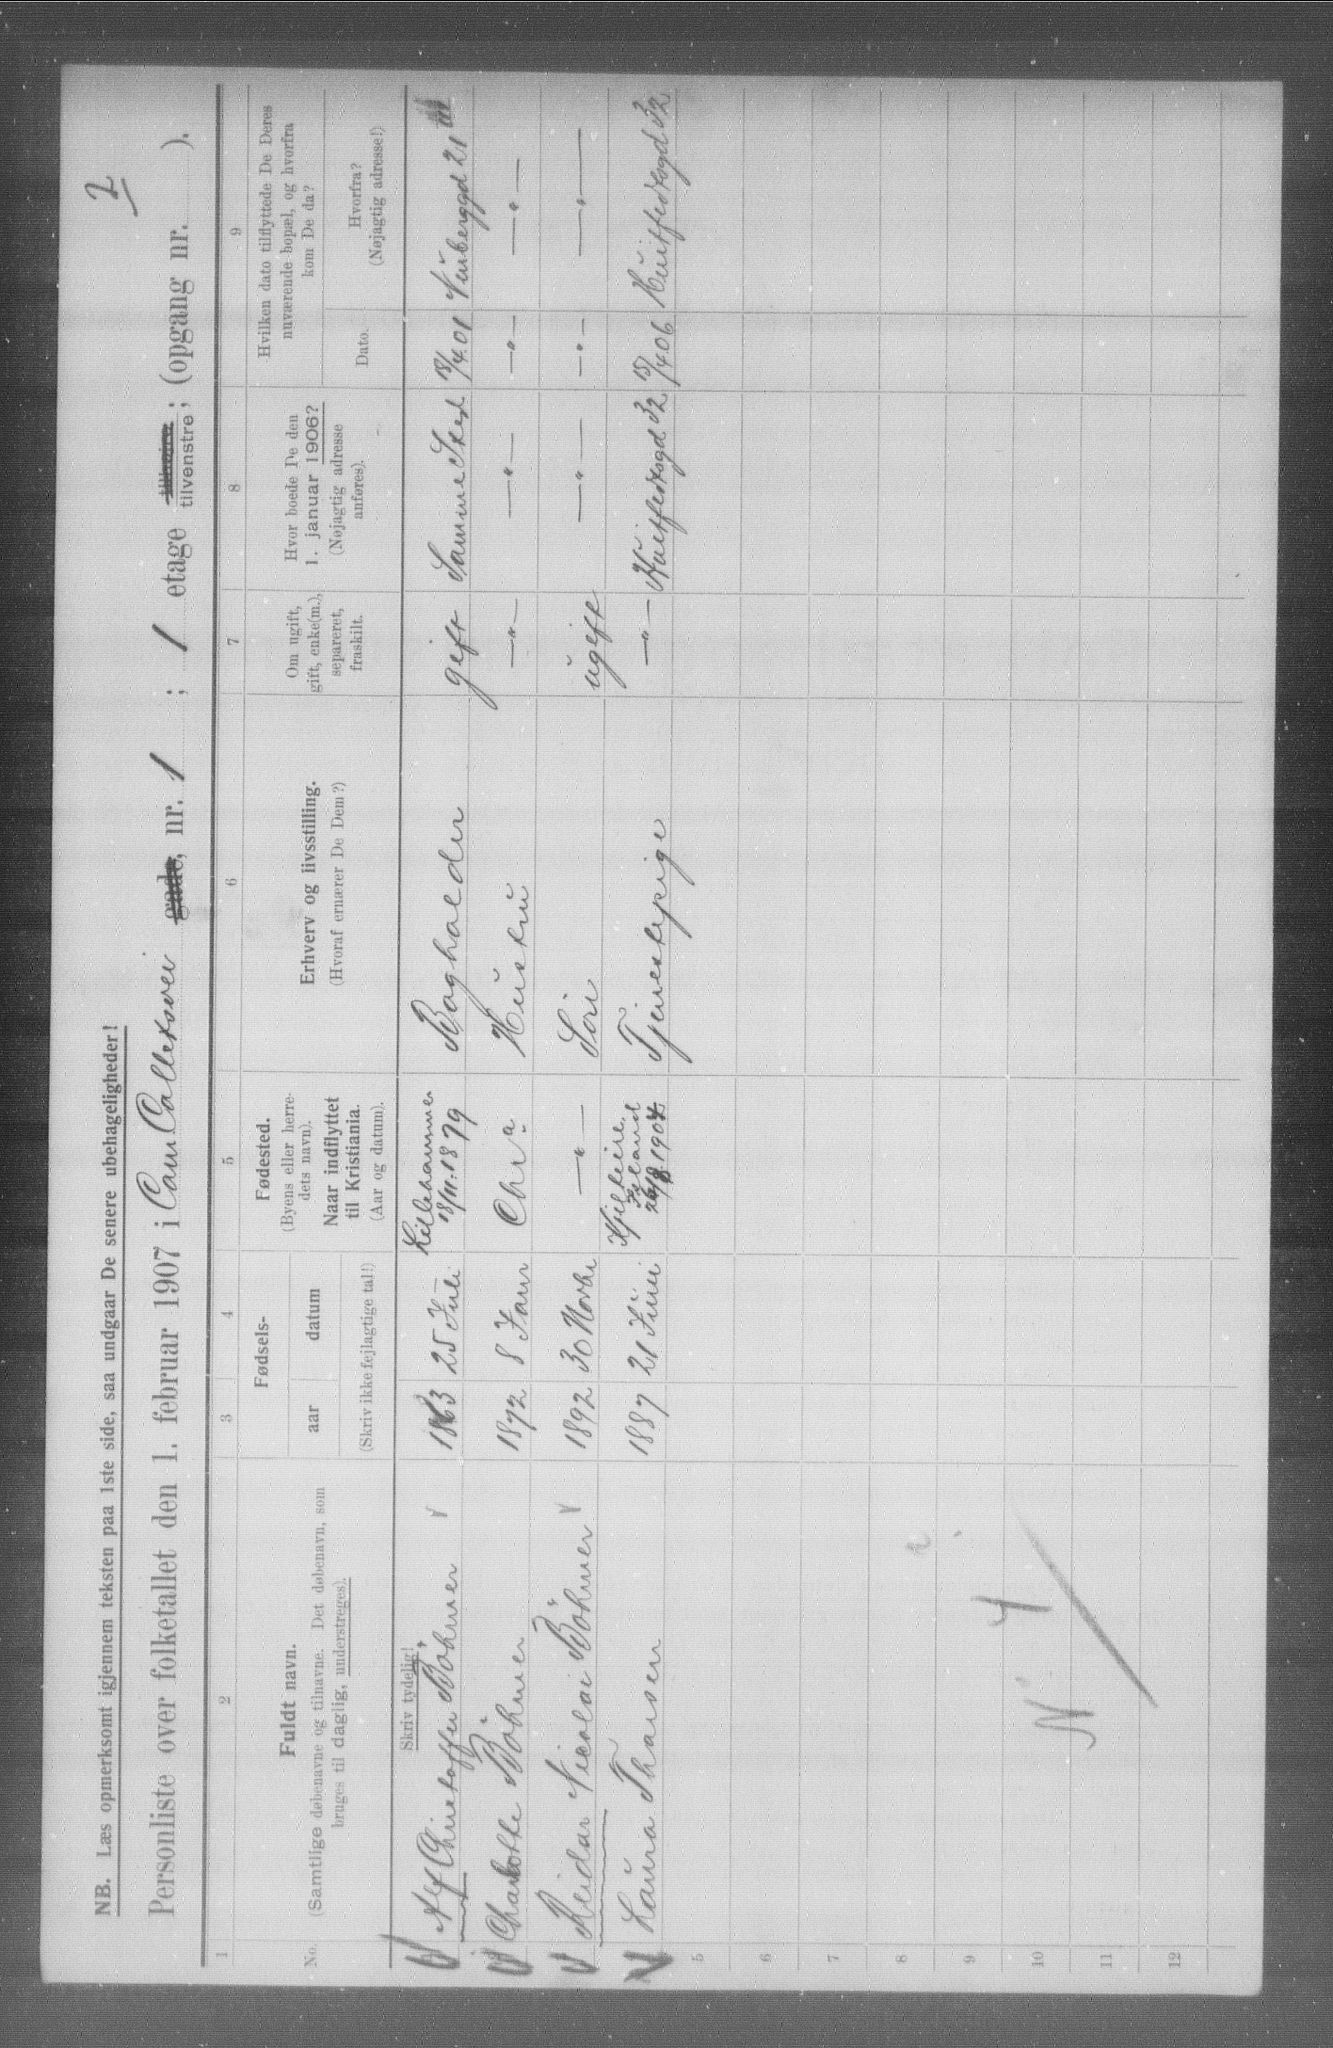 2
NB. Læs opmerksomt igjennem teksten paa 1ste side, saa undgaar De senere ubehageligheder!
Personliste over folketallet den 1. februar 1907 i Cam Colletsvei gade, nr. 1 ; 1 etage tilhøire tilvenstre; (opgang nr. ).
1 2 3 4 5 6 7 8 9
No.
Fuldt navn.
(Samtlige døbenavne og tilnavne. Det døbenavn, som
bruges til daglig, understreges).
Fødsels-
aar datum
(Skriv ikke fejlagtige tal!)
Fødested.
(Byens eller herre-
dets navn).
Naar indflyttet
til Kristiania.
(Aar og datum).
Erhverv og livsstilling.
(Hvoraf ernærer De Dem?)
Om ugift,
gift, enke(m.),
separeret,
fraskilt.
Hvor boede De den
1. januar 1906?
(Nøjagtig adresse
anføres).
Hvilken dato tilflyttede De Deres
nuværende bopæl, og hvorfra
kom De da?
Dato.
Hvorfra?
(Nøjagtig adresse!)
Skriv tydelig!
Alf Christoffer Böhmer 1863 25 Juli Lillehammer 18/11.1879 Bogholder gift Samme Sted 18/4 01 21 III
Charlotte Böhmer 1872 8 Janr Chra. Hustru —"— —"— —"— —"—
Reidar Nicolai Böhmer 1892 30 Novbr —"— Søn ugift —"— —"— —"—
Laura Thorsen 1887 21 Juni 1904 Tjenestepige —"— Huitfeldtsgd 32 18/4 06 Huitfeldtsgd 32
5
6
7
8
9
10
11
12
N 4